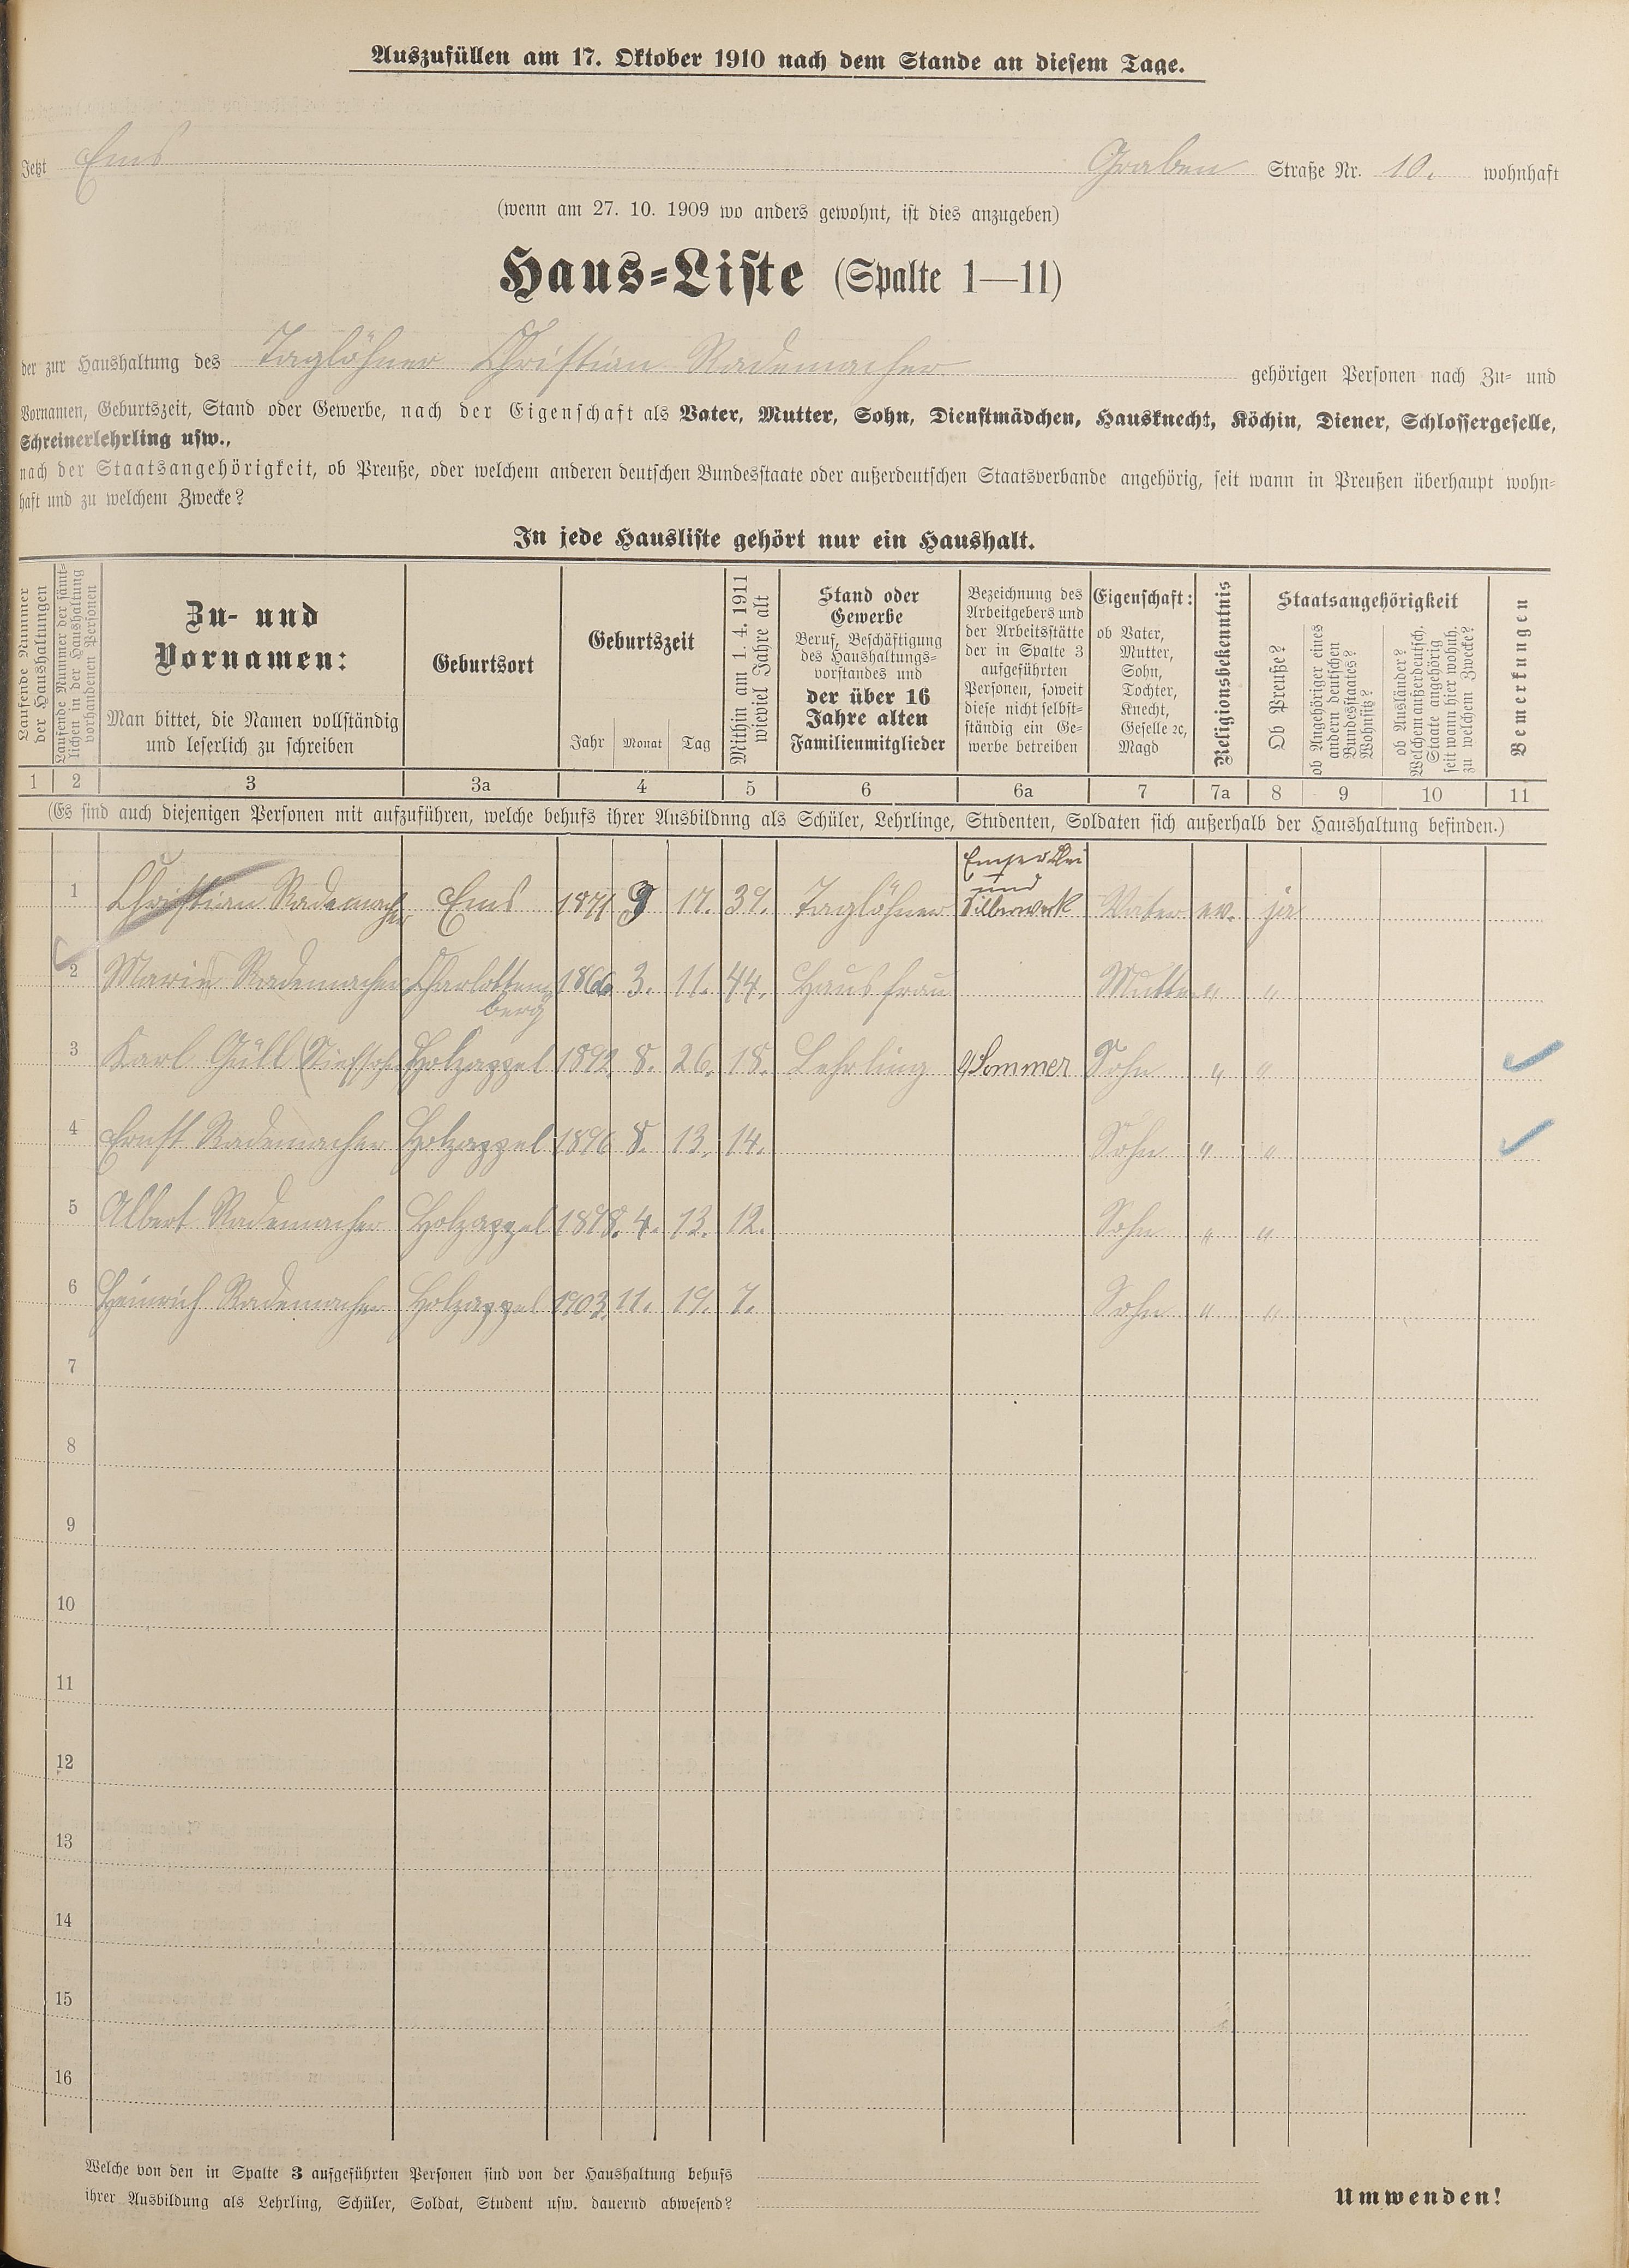 Auszufüllen am 17. Oktober 1910 nach dem Stande an diesem Tage.
Jetzt Ems Graben Straße Nr. 10. wohnhaft
(wenn am 27. 10. 1909 wo anders gewohnt, ist dies anzugeben)
Haus-Liste (Spalte 1—11)
der zur Haushaltung des Taglöhner Christian Rademacher gehörigen Personen nach Zu- und
Vornamen, Geburtszeit, Stand oder Gewerbe, nach der Eigenschaft als Vater, Mutter, Sohn, Dienstmädchen, Hausknecht, Köchin, Diener, Schlossergeselle,
Schreinerlehrling usw.,
nach der Staatsangehörigkeit, ob Preuße, oder welchem anderen deutschen Bundesstaate oder außerdeutschen Staatsverbande angehörig, seit wann in Preußen überhaupt wohn-
haft und zu welchem Zwecke?
In jede Hausliste gehört nur ein Haushalt.
Laufende Nummer
der Haushaltungen
Laufende Nummer der sämt-
lichen in der Haushaltung
vorhandenen Personen
Zu- und
Vornamen:
Man bittet, die Namen vollständig
und leserlich zu schreiben
Geburtsort
Geburtszeit
Jahr Monat Tag
Mithin am 1. 4. 1911
wieviel Jahre alt
Stand oder
Gewerbe
Beruf, Beschäftigung
des Haushaltungs-
vorstandes und
der über 16
Jahre alten
Familienmitglieder
Bezeichnung des
Arbeitgebers und
der Arbeitsstätte
der in Spalte 3
aufgeführten
Personen, soweit
diese nicht selbst-
ständig ein Ge-
werbe betreiben
Eigenschaft:
ob Vater,
Mutter,
Sohn,
Tochter,
Knecht,
Geselle ꝛc,
Magd
Religionsbekenntnis
Staatsangehörigkeit
Ob Preuße?
ob Angehöriger eines
andern deutschen
Bundesstaates?
Wohnsitz?
ob Ausländer?
Welchem außerdeutsch.
Staate angehörig
seit wann hier wohnh.
zu welchem Zwecke?
Bemerkungen
1 2 3 3a 4 5 6 6a 7 7a 8 9 10 11
(Es sind auch diejenigen Personen mit aufzuführen, welche behufs ihrer Ausbildnng als Schüler, Lehrlinge, Studenten, Soldaten sich außerhalb der Haushaltung befinden.)
1 Christian Rademacher Ems 1871 9 17. 39. Taglöhner Emser Blei und Silberwerk Vater ev. ja
2 Marie Rademacher Charlottenberg 1866 3. 11. 44. Hausfrau Mutter " "
3 Karl Güll (Stiefsohn Holzappel 1892. 8. 26. 18. Lehrling Sommer Sohn " "
4 Ernst Rademacher Holzappel 1896 8. 13. 14. Sohn " "
5 Albert Rademacher Holzappel 1898. 4. 13. 12. Sohn " "
6 Heinrich Rademacher Holzappel 1903. 11. 19. 7. Sohn " "
7
8
9
10
11
12
13
14
15
16
Welche von den in Spalte 3 aufgeführten Personen sind von der Haushaltung behufs
ihrer Ausbildung als Lehrling, Schüler, Soldat, Student usw. dauernd abwesend?
Umwenden!